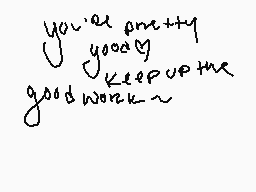 you're pretty
good♡
keep up the
good work~